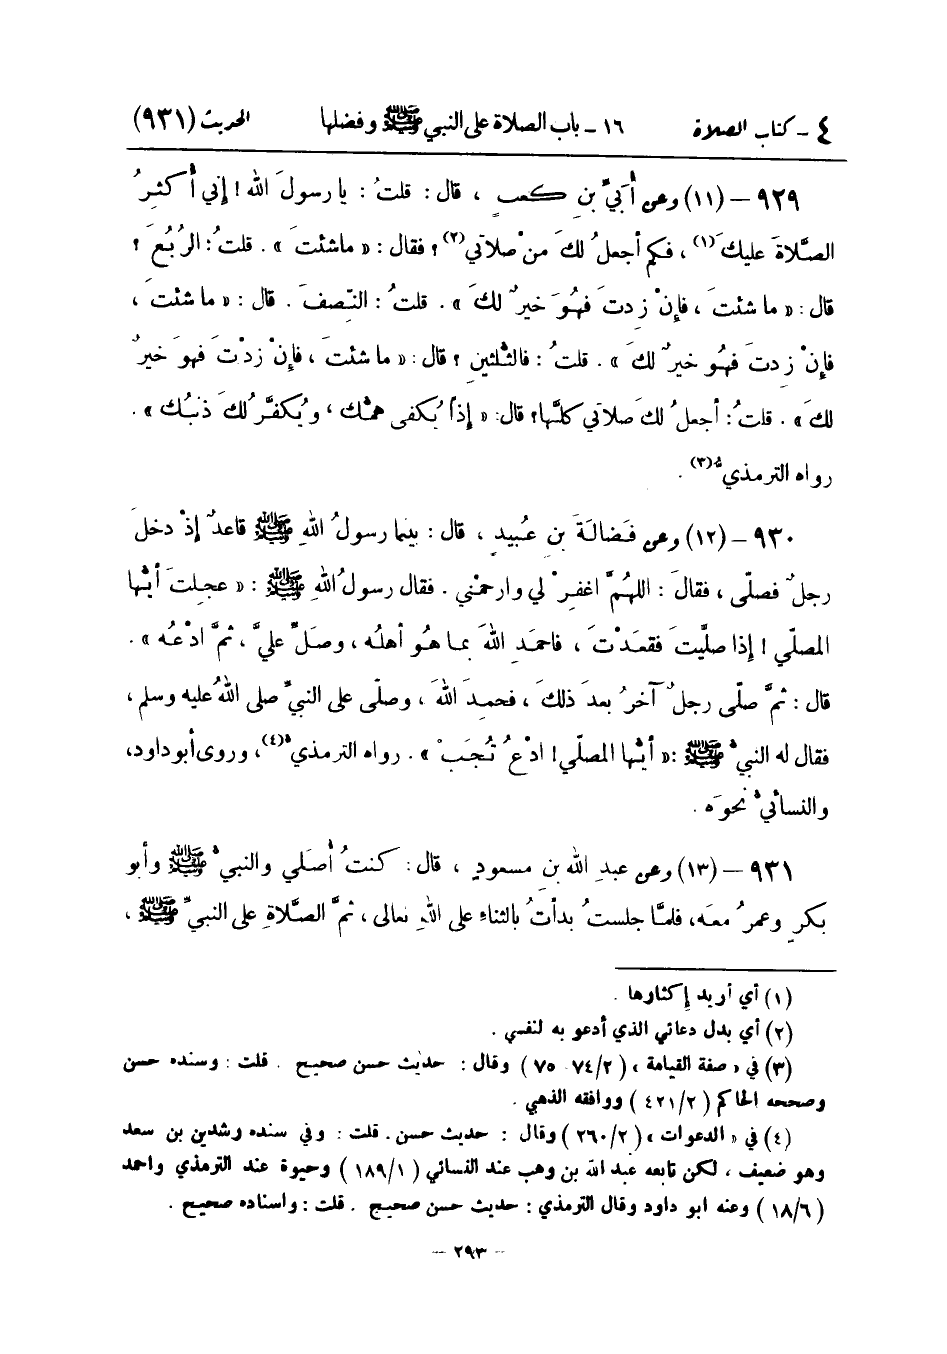 ٤ - كتاب الصلاة ١٦ - باب الصلاة على النبي ﷺ وفضلها الحديث (٩٣١)
٩٢٩ - (١١) وعن أُبَيِّ بنِ كعبٍ ، قال : قلتُ : يا رسولَ الله ! إني أُكثِرُ
الصَّلاةَ عليكَ(١) ، فكم أجعلُ لكَ منْ صلاتي(٢) ؟ فقال : « ماشئتَ » . قلتُ : الرُبُعَ ؟
قال : « ما شئتَ ، فإنْ زدتَ فهُوَ خيرٌ لكَ » . قلتُ : النّصفَ . قال : « ما شئتَ ،
فإنْ زدتَ فهُو خيرٌ لكَ » . قلتُ : فالثلثينِ ؟ قال : « ما شئتَ ، فإنْ زدْتَ فهوَ خيرٌ
لكَ » . قلتُ : أجعلُ لكَ صلاتي كلَّها؟ قال: « إذاً يُكفى همُّك ، ويُكفَّرُ لكَ ذنبُك » .
رواه الترمذيُّ(٣) .
٩٣٠ - (١٢) وعن فَضالةَ بنِ عُبيدٍ ، قال : بينما رسولُ اللهِ ﷺ قاعدٌ إذْ دخلَ
رجلٌ فصلّى ، فقالَ : اللهُمَّ اغفِرْ لي وارحمْني . فقال رسولُ اللهِ ﷺ : « عجِلتَ أيُّها
المصلّي ! إذا صلَّيتَ فقعَدْتَ ، فاحمَدِ اللهَ بما هُو أهلُه ، وصَلِّ عليَّ ، ثمَّ ادْعُه » .
قال : ثمَّ صلّى رجلٌ آخرُ بعدَ ذلكَ ، فحمِدَ اللهَ ، وصلّى على النبيِّ صلى اللهُ عليه وسلم ،
فقال له النبيُّ ﷺ :« أيُّها المصلّي! ادْعُ تُجَبْ » . رواه الترمذيُّ(٤)، وروى أبو داود،
والنسائيُّ نحوَه .
٩٣١ - (١٣) وعن عبدِ اللهِ بنِ مسعودٍ ، قال : كنتُ أُصَلي والنبيُّ ﷺ وأبو
بكرٍ وعمرُ معَه، فلمَّا جلستُ بدأتُ بالثناءِ على اللهِ تعالى ، ثمَّ الصَّلاةِ على النبيِّ ﷺ ،
(١) أي أريد إكثارها .
(٢) أي بدل دعائي الذي أدعو به لنفسي .
(٣) في « صفة القيامة » (٢/ ٧٤ - ٧٥) وقال : حديث حسن صحيح . قلت : وسنده حسن
وصححه الحاكم ( ٤٢١/٢ ) ووافقه الذهبي .
(٤) في « الدعوات » (٢٦٠/٢ ) وقال : حديث حسن . قلت : وفي سنده رشدين بن سعد
وهو ضعيف ، لكن تابعه عبد الله بن وهب عند النسائي ( ١٨٩/١ ) وحيوة عند الترمذي واحمد
( ١٨/٦ ) وعنه ابو داود وقال الترمذي : حديث حسن صحيح . قلت : واسناده صحيح .
- ٢٩٣ -